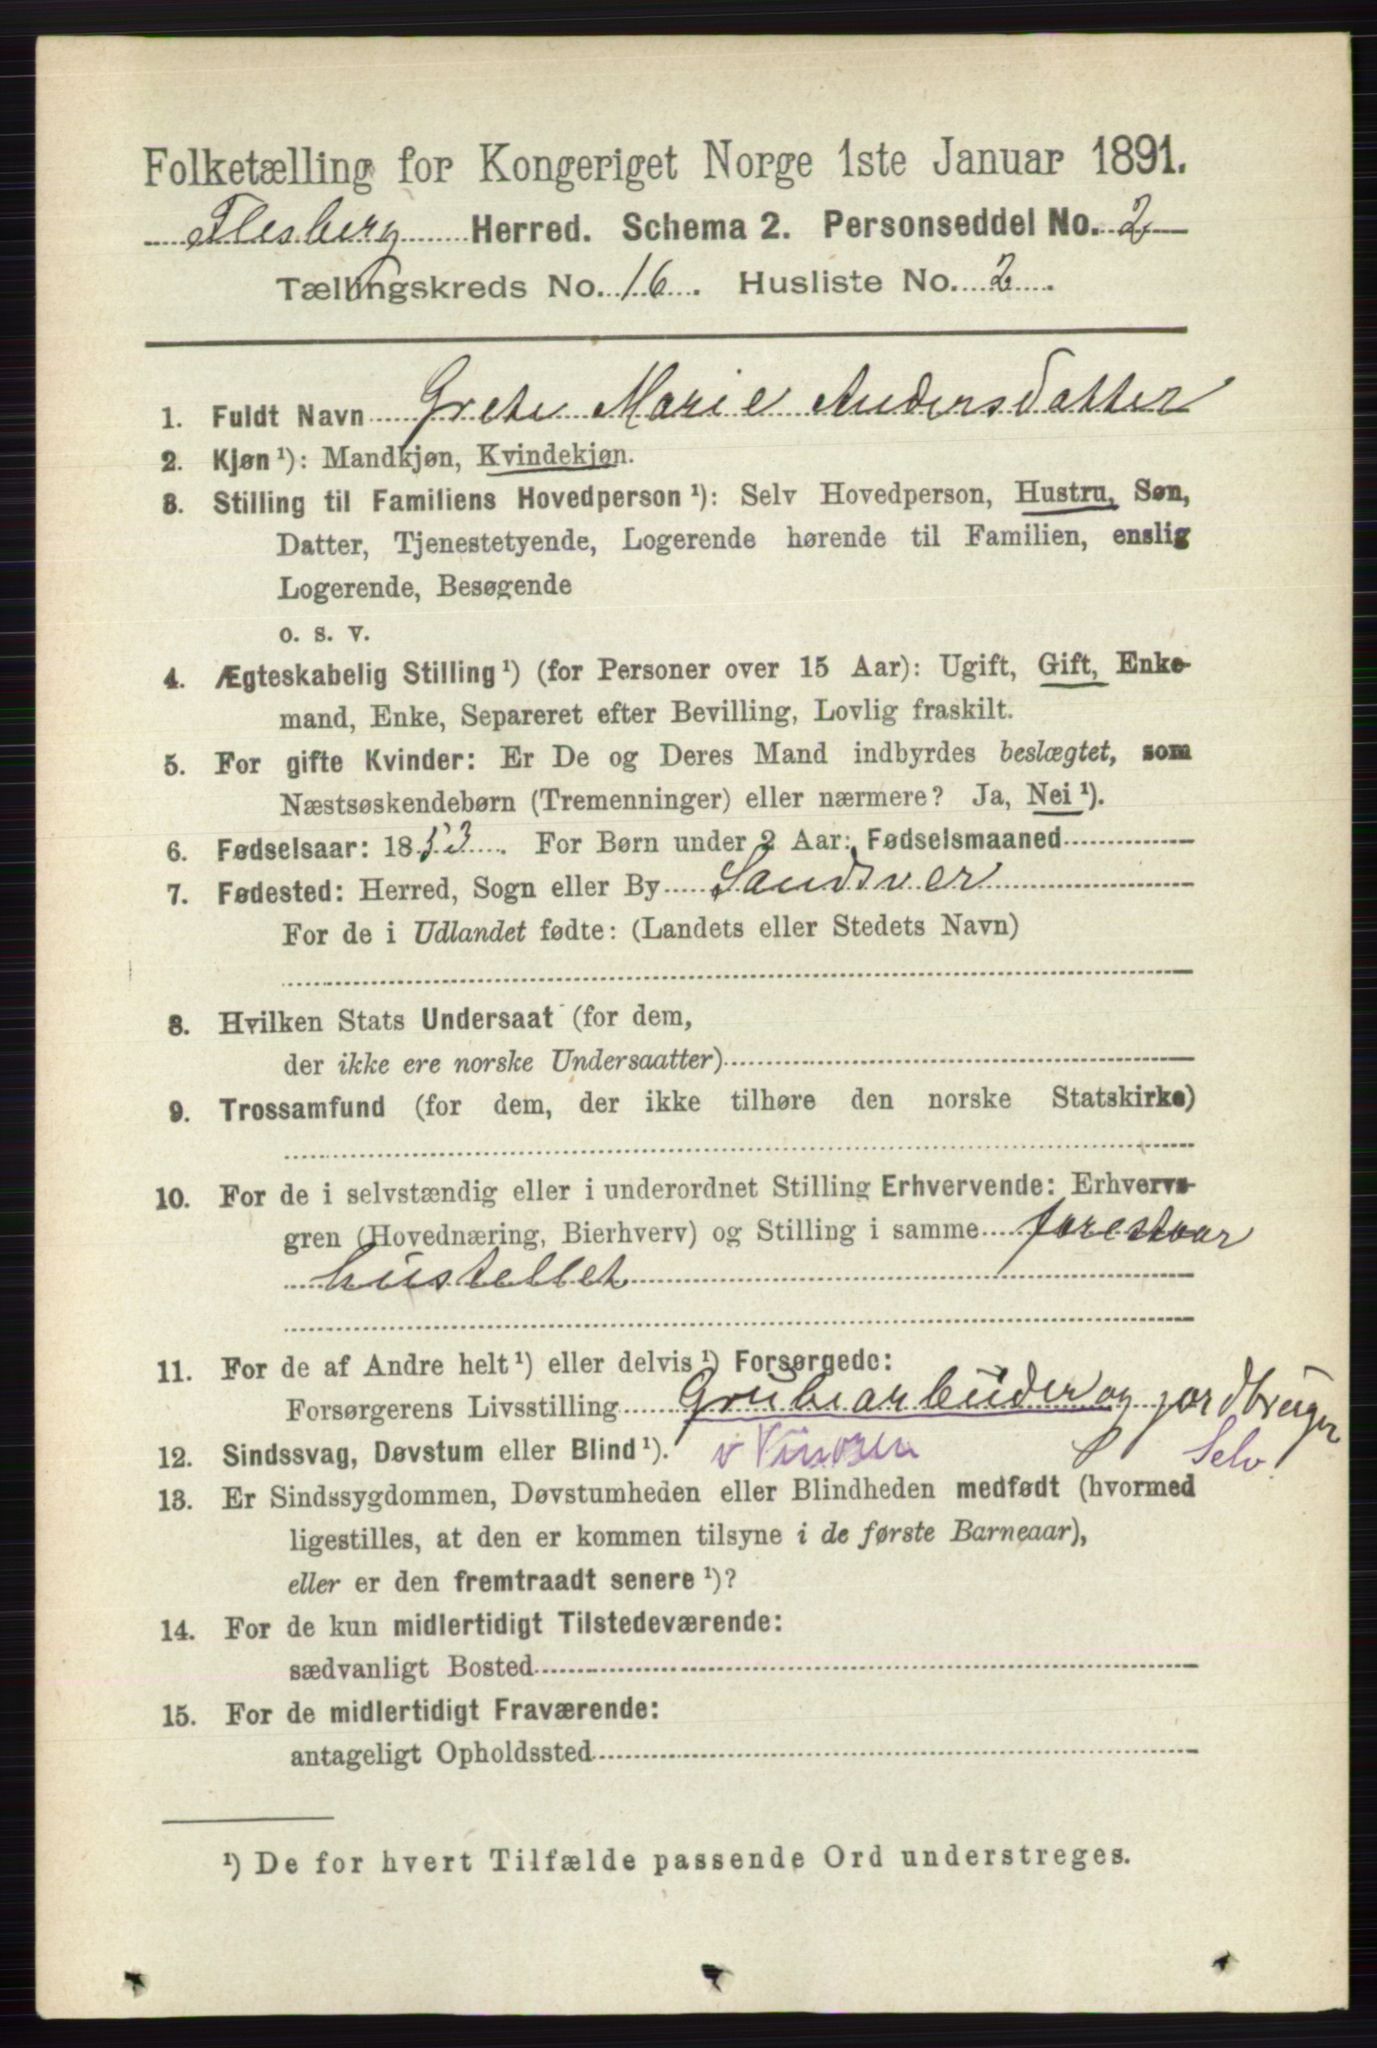 Folketælling for Kongeriget Norge 1ste Januar 1891.
Flesberg Herred. Schema 2. Personseddel No. 2
Tællingskreds No. 16. Husliste No. 2.
1. Fuldt Navn Grete Marie Andersdatter
2. Kjøn ¹): Mandkjøn, Kvindekjøn.
3. Stilling til Familiens Hovedperson ¹): Selv Hovedperson, Hustru, Søn,
Datter, Tjenestetyende, Logerende hørende til Familien, enslig
Logerende, Besøgende
o. s. v.
4. Ægteskabelig Stilling ¹) (for Personer over 15 Aar): Ugift, Gift, Enke-
mand, Enke, Separeret efter Bevilling, Lovlig fraskilt.
5. For gifte Kvinder: Er De og Deres Mand indbyrdes beslægtet, som
Næstsøskendebørn (Tremenninger) eller nærmere? Ja, Nei ¹).
6. Fødselsaar: 1853. For Børn under 2 Aar: Fødselsmaaned
7. Fødested: Herred, Sogn eller By Sandsver
For de i Udlandet fødte: (Landets eller Stedets Navn)
8. Hvilken Stats Undersaat (for dem,
der ikke ere norske Undersaatter)
9. Trossamfund (for dem, der ikke tilhøre den norske Statskirke)
10. For de i selvstændig eller i underordnet Stilling Erhvervende: Erhvervs-
gren (Hovednæring, Bierhverv) og Stilling i samme forestaar
hustellet
11. For de af Andre helt ¹) eller delvis ¹) Forsørgede:
Forsørgerens Livsstilling Grubearbeider og jordbruger
12. Sindssvag, Døvstum eller Blind ¹). v Selv
13. Er Sindssygdommen, Døvstumheden eller Blindheden medfødt (hvormed
ligestilles, at den er kommen tilsyne i de første Barneaar),
eller er den fremtraadt senere ¹)?
14. For de kun midlertidigt Tilstedeværende:
sædvanligt Bosted
15. For de midlertidigt Fraværende:
antageligt Opholdssted
¹) De for hvert Tilfælde passende Ord understreges.